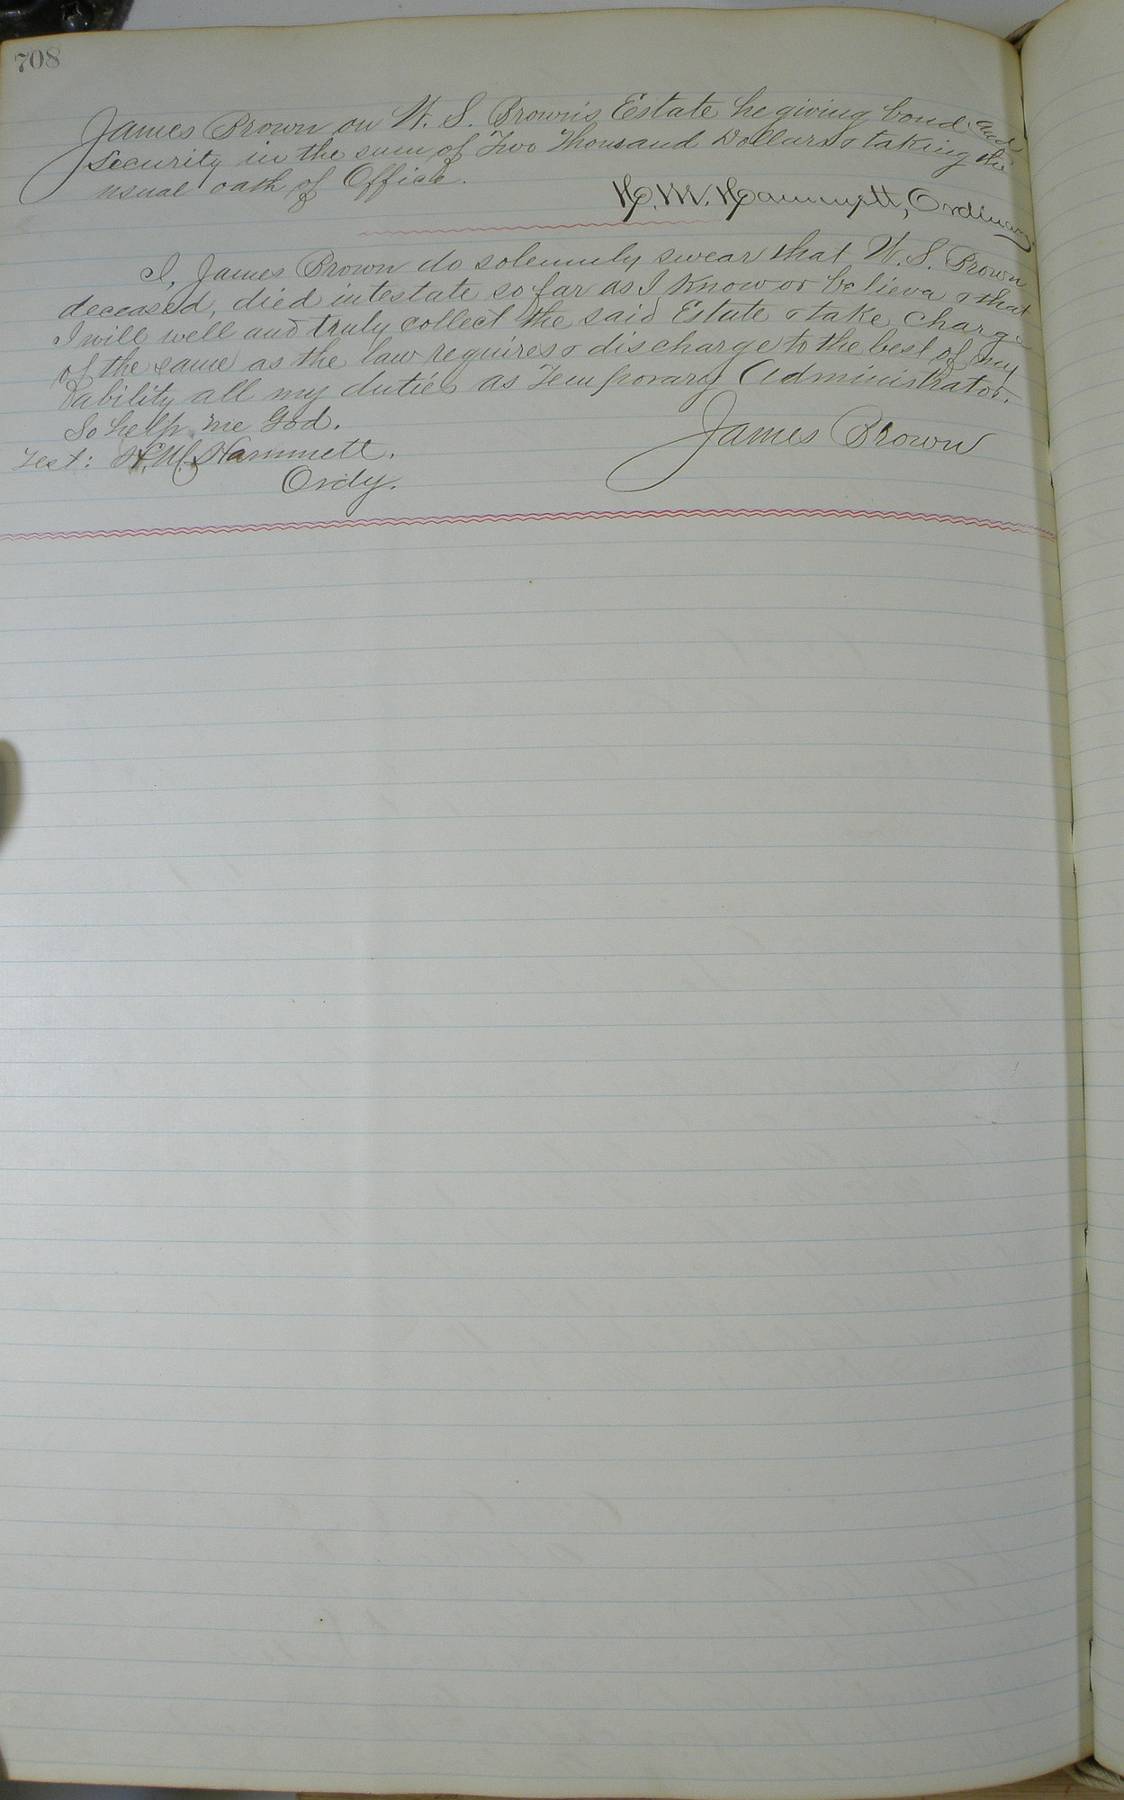 708
James Brown on W. S. Brown's Estate he giving bond and
security in the sum of Two Thousand Dollars & taking the
usual oath of Office.
H. M. Hammett, Ordinary
I, James Brown do solemnly swear that W. S. Brown
deceased, died intestate so far as I know or believe & that
I will well and truly collect the said Estate & take charge
of the same as the law requires & discharge to the best of my
ability all my duties as Temporary Administrator.
So help me God.
James Brown
Test: H. M. Hammett.
Ordy.